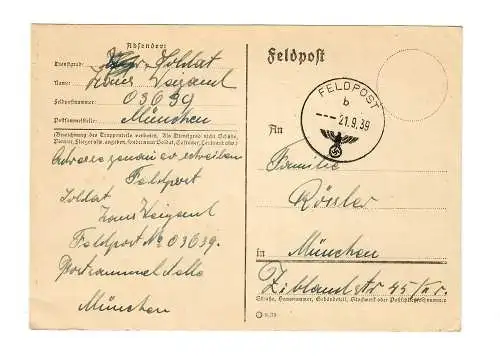 Absender:
Dienstgrad: Soldat
Name: Hans Weigand
Feldpostnummer: 03639
Postsammelstelle: München
(Bezeichnung des Truppenteils verboten. Als Dienstgrad nicht Schütze,
Pionier, Flieger usw. angeben, sondern nur Soldat, Gefreiter, Leutnant usw.)
Adresse genau so schreiben
Feldpost
Soldat
Hans Weigand
Feldpost No 03639.
Postsammelstelle
München
Feldpost
FELDPOST
b
--- 21.9.39
An
Familie
Rösler
in München
Ziebland Str 45/
Straße, Hausnummer, Gebäudeteil, Stockwerk oder Postschließfachnummer